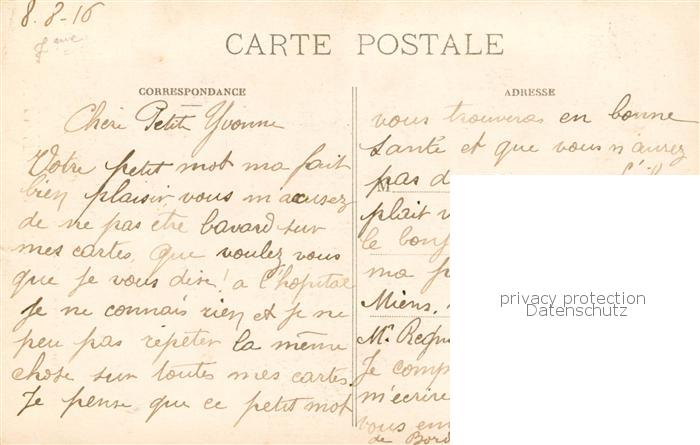 8.8-16
CARTE POSTALE
CORRESPONDANCE
Chère Petite Yvonne
Votre petit mot ma fait
bien plaisir vous m'accusez
de ne pas être bavard sur
mes cartes, que voulez vous
que je vous dise! a l'hopital
je ne connais rien et je ne
peu pas répéter la même
chose sur toutes mes cartes.
Je pense que ce petit mot
ADRESSE
vous trouveras en bonne
santé et que vous n'aurez
pas d
M
plait v
le bon
ma p
Miens,
Mr Regn
Je comp
m'écrire
vous em
de Bord
privacy protection
Datenschutz